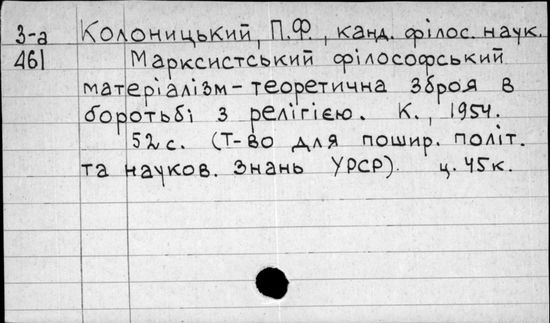 З-а Колоницький, П.Ф., канд. філос. наук.
461 Марксистський філософський
матеріалізм-теоретична зброя в
боротьбі з релігією. К., 1954.
52с. (Т-во для пошир. політ.
та науков. знань УРСР). ц. 45к.